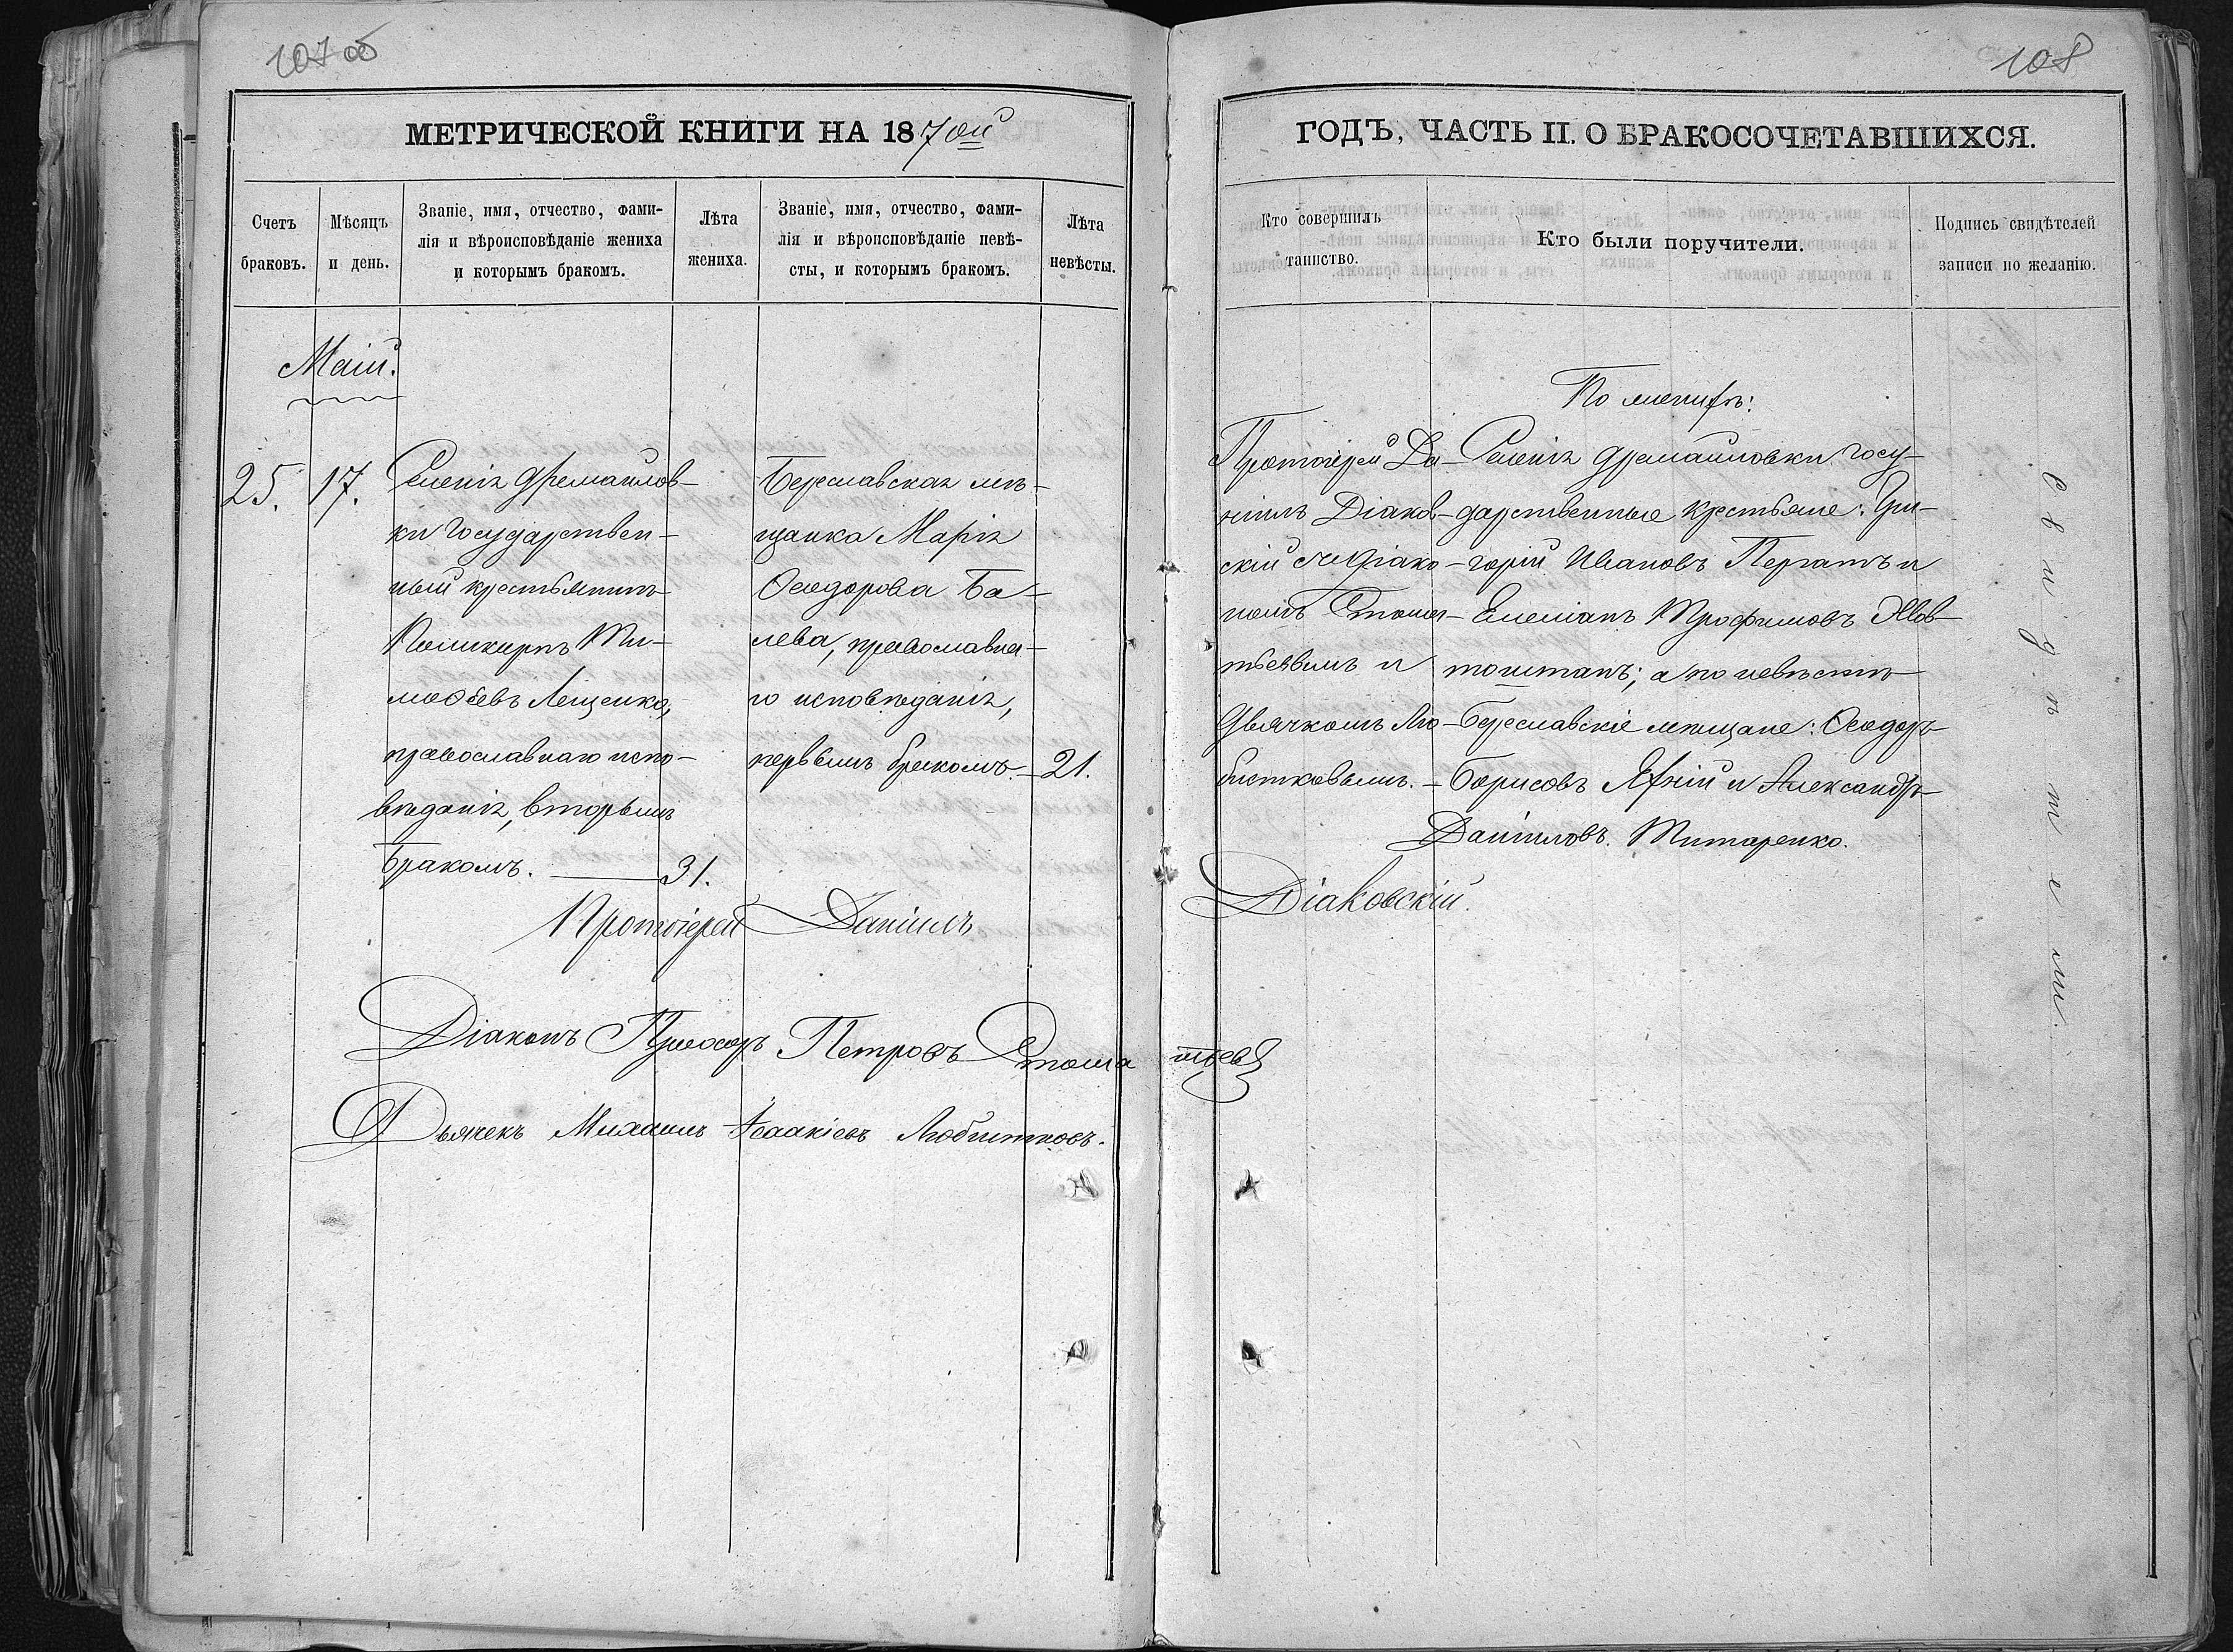 107 об
МЕТРИЧЕСКОЙ КНИГИ НА 1870й
Счетъ браковъ.
Мѣсяцъ и день.
Званіе, имя, отчество, фами-
лія и вѣроисповѣданіе жениха
и которымъ бракомъ.
Лѣта
жениха.
Званіе, имя, отчество, фами-
лія и вѣроисповѣданіе невѣ-
сты, и которымъ бракомъ.
Лѣта
невѣсты.
Маій.
25. 17.
Селенія Дремайлов-
ки государствен-
ный крестьянинъ
Ти-
моѳеевъ Лещенко,
православнаго испо-
вѣданія, вторымъ
бракомъ. 31.
Береславская мѣ-
щанка Марія
Ѳеодорова Ба-
лева, православна-
го исповѣданія,
первымъ бракомъ. 21.
Протоіерей Даніилъ
Діаконъ Петровъ Стома
Дьячекъ Михаилъ Исаакіевъ Любитковъ.
108
ГОДЪ, ЧАСТЬ II. О БРАКОСОЧЕТАВШИХСЯ.
Кто совершилъ
таинство.
Кто были поручители.
Подпись свидѣтелей
записи по желанію.
Протоіерей Да-
ніилъ Діаков-
скій съ діако-
номъ Стома-
тьевымъ и
дьячкомъ Лю-
битковымъ.
По женихѣ:
Селенія Дремайловки госу-
дарственные крестьяне: Гри-
горій Ивановъ Пергатъ и
Емеліанъ Трофимовъ Жов-
тоштанъ; а по невѣстѣ
Береславскіе мѣщане: Ѳеодоръ
Борисовъ и Александръ
Даніиловъ Титаренко.
Свидѣтели.
Діаковскій.
тьевъ